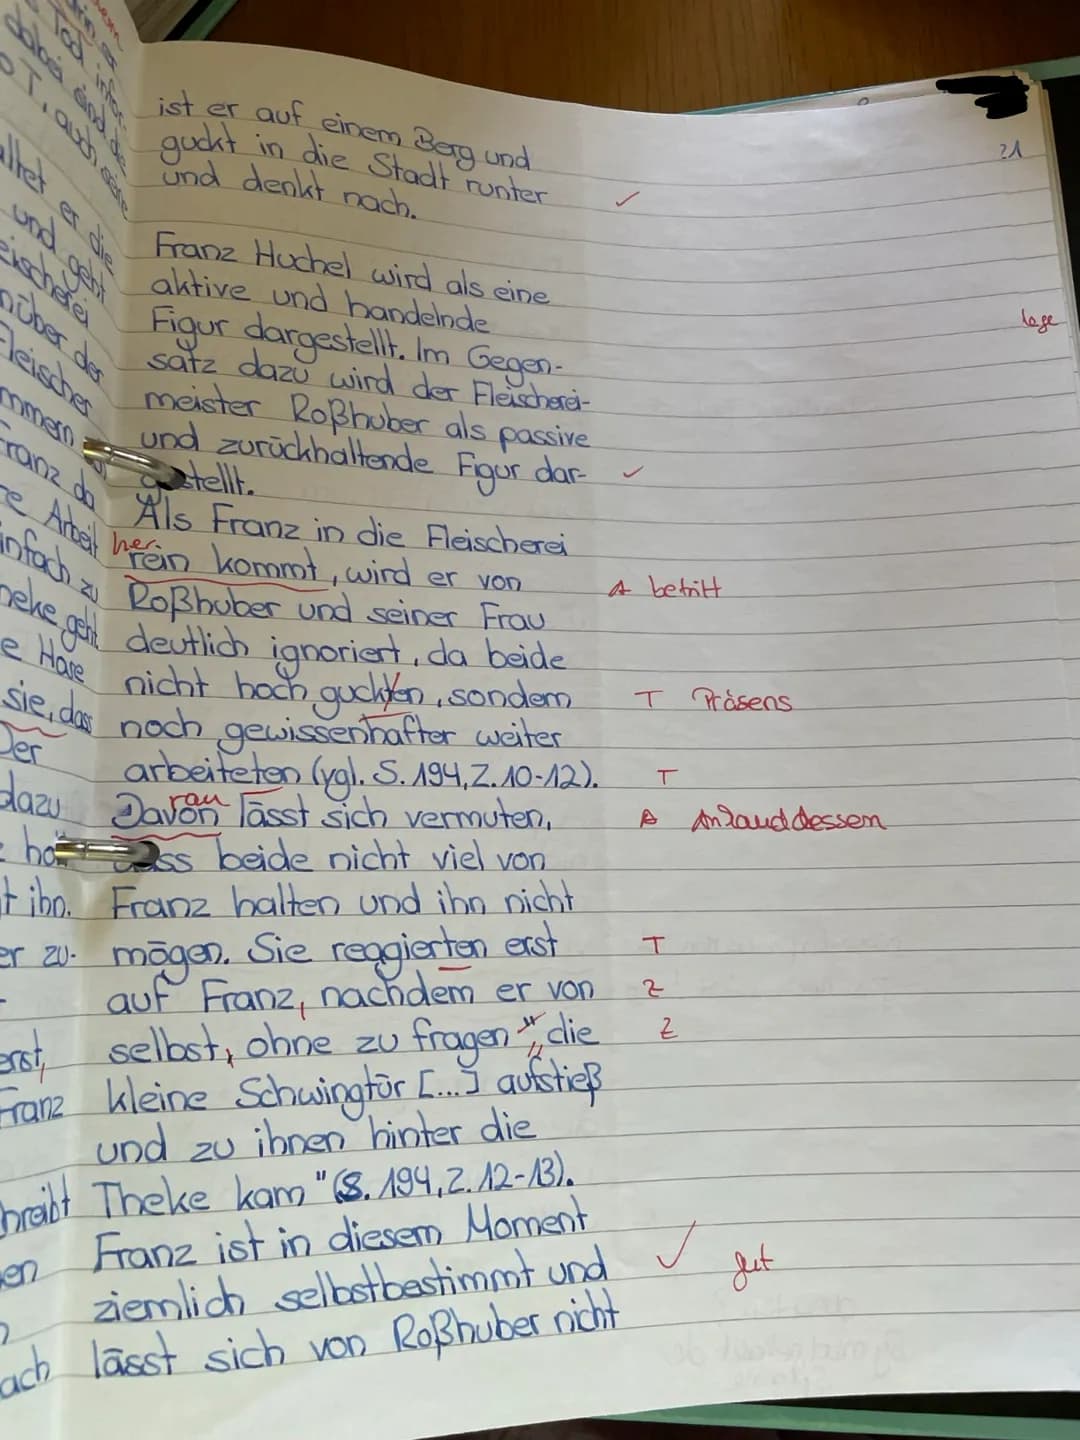 21
ist er auf einem Berg und
guckt in die Stadt runter
und denkt nach.
Franz Huchel wird als eine
aktive und handelnde
Figur dargestellt. Im Gegen-
satz dazu wird der Fleischerei-
meister Roßhuber als passive
und zurückhaltende Figur dar-
stellt.
Als Franz in die Fleischerei
her
rein kommt, wird er von A betritt
Roßhuber und seiner Frau
deutlich ignoriert, da beide
nicht hoch guckten, sondern T Präsens
noch gewissenhafter weiter
arbeiteten (vgl. S. 194, Z. 10-12). T
rau
Davon lässt sich vermuten, A
dass beide nicht viel von
Franz halten und ihn nicht
mögen. Sie reagierten erst T
auf Franz, nachdem er von Z
selbst, ohne zu fragen ", „die Z
kleine Schwingtür [...] aufstieß
und zu ihnen hinter die
Theke kam" (S. 194, Z. 12-13).
Franz ist in diesem Moment
ziemlich selbstbestimmt und gut
lässt sich von Roßhuber nicht
Tod
dabei sind die
T, auch
er die
und geht
über der
Fleischer
Franz da
Arbeit
zu
geht
Hase
sie, dass
Der
dazu
ihn.
er zu-
erst,
Franz